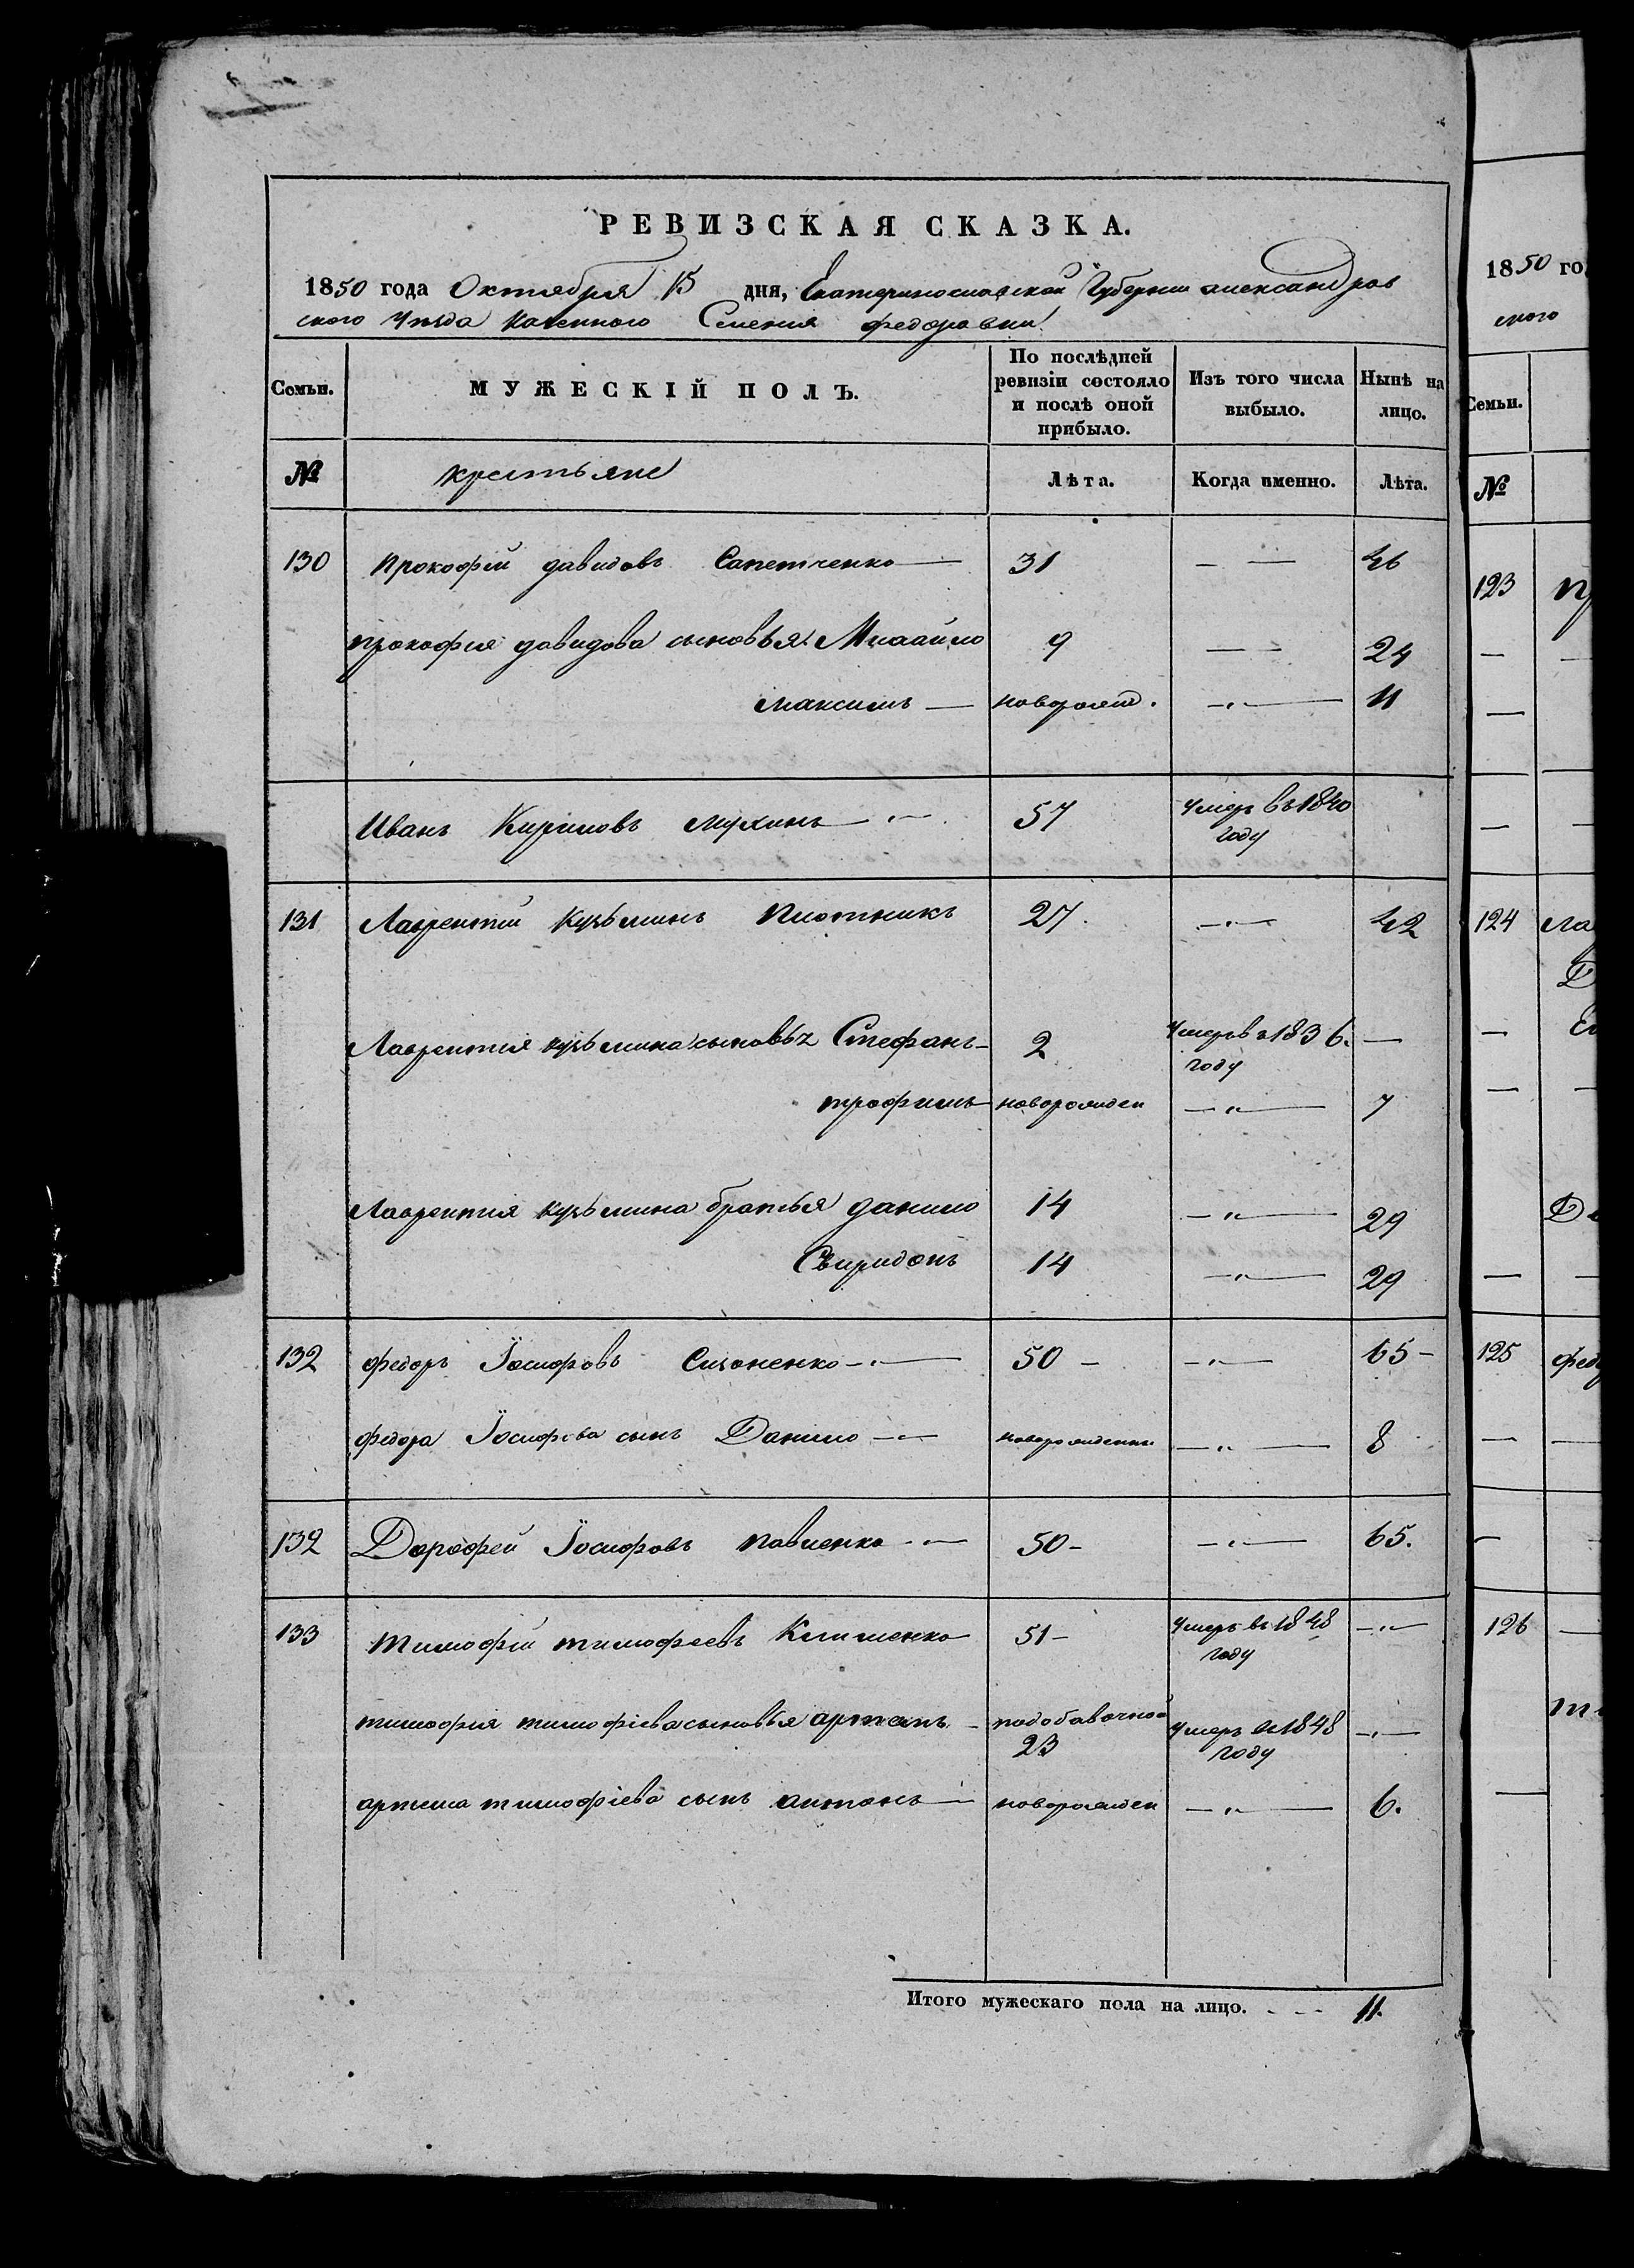 РЕВИЗСКАЯ СКАЗКА.
1850 года Октября 15 дня, Екатеринославской Губернии александров
ского Уезда Казенного Селения федоровки
Семьи.
МУЖЕСКІЙ ПОЛЪ.
По послѣдней ревизіи состояло и послѣ оной прибыло.
Изъ того числа выбыло.
Нынѣ на лицо.
№ крестьяне Лѣта. Когда именно. Лѣта.
130 Прокофій давидовъ Сапетченко — 31 — — 46
прокофия давидова сыновья: Михайло 9 — — 24
Максимъ — новорожд. —„— 11
Иванъ Кириловъ мухинъ —„— 57 умеръ въ 1840
году
131 Лаврентій кузьминъ Плотникъ 27. —„— 42
Лаврентия кузьмина сыновья Стефанъ — 2 Умеръ в 1836. —
году
трофимъ — новорожден —„— 7
Лаврентия кузьмина братья данило 14 —„— 29
Свиридонъ 14 —„— 29
132 федоръ Іосифовъ —„— 50 — —„— 65 —
федора Іосифова сынъ Данило —„— новорожденны —„— 8
132 Дорофей Іосифовъ павленко —„— 50 — —„— 65.
133 Тимофій тимофеевъ Клименко 51 — Умеръ въ 1848 —„—
году
тимофія тимофіева сыновья артемъ — подобавочной Умеръ в 1848 —„—
23 году
артема тимофіева сынъ антонъ — новорожден —„— 6.
Итого мужескаго пола на лицо. - - - 11.
1850 го
ского
Семьи.
№
123
124 Ла
125 федо
126